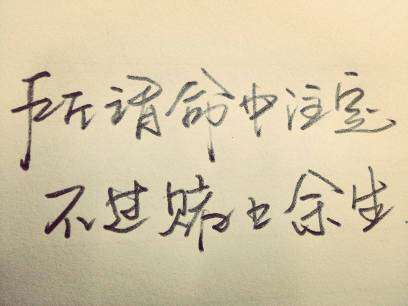 所谓命中注定
不过赌上余生